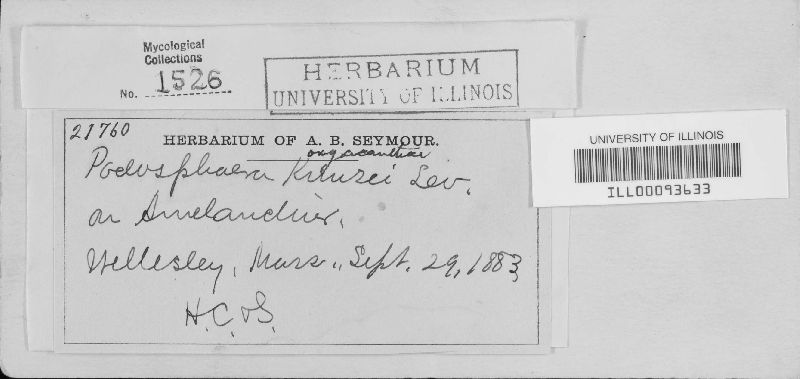 Mycological
Collections
No. 1526
HERBARIUM
UNIVERSITY OF ILLINOIS
21760
HERBARIUM OF A. B. SEYMOUR.
oxyacanthae
Podosphaera Kunzei Lev.
on Amelanchier,
Wellesley, Mass., Sept. 29, 1883
H. C. & S.
UNIVERSITY OF ILLINOIS
ILL00093633